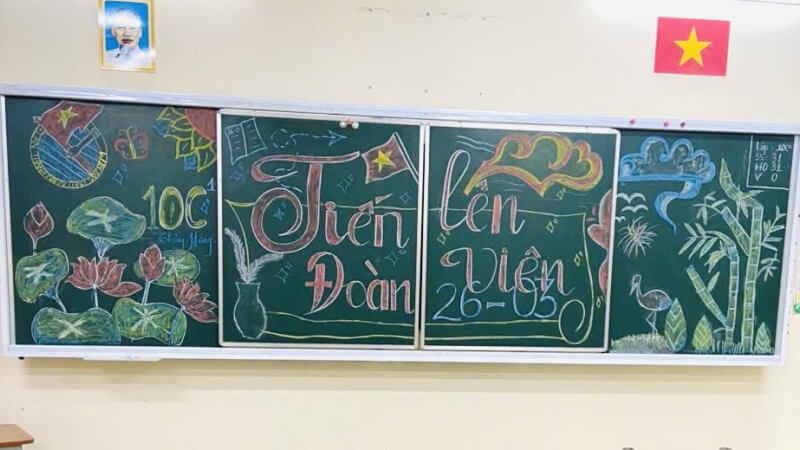 10C1
Tiến lên
Đoàn Viên
26-03
Lớp: 10C
SS: 31
HD 31
V 0